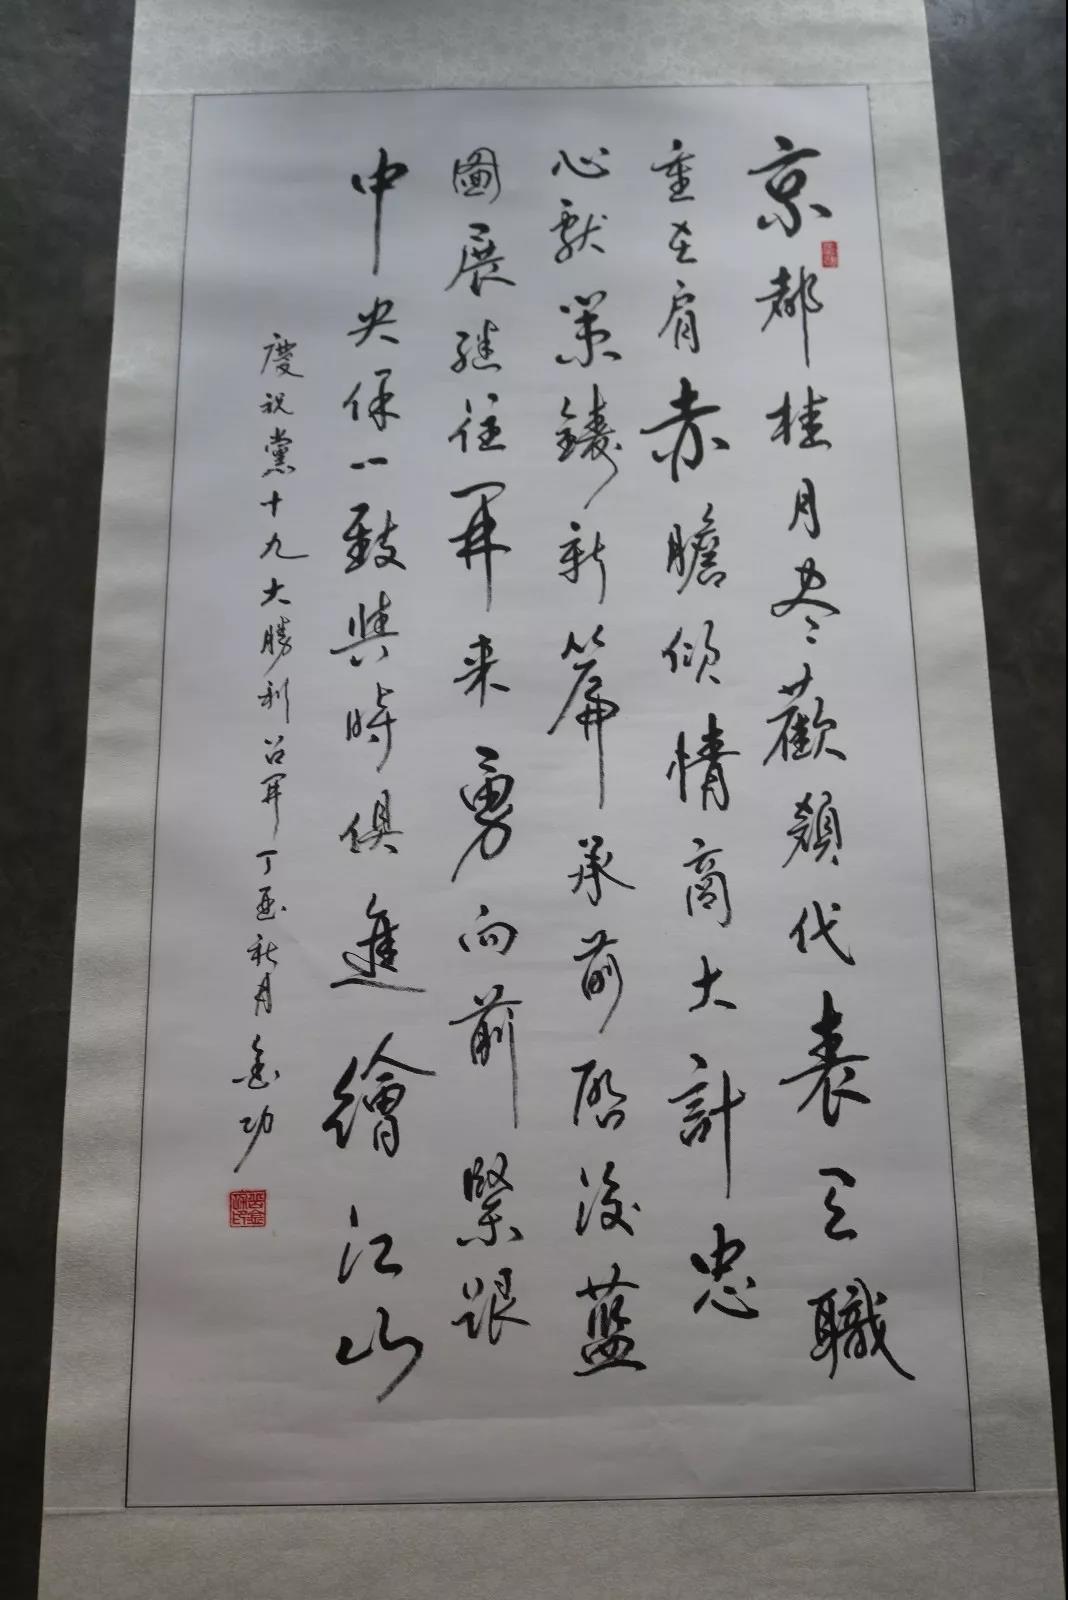 京都桂月尽歡顏代表天職
重在肩赤膽傾情商大計忠
心獻策鑄新篇承前啟後藍
圖展繼往開来勇向前緊跟
中央保一致與時俱進繪江山
慶祝黨十九大勝利召開丁酉秋月金功